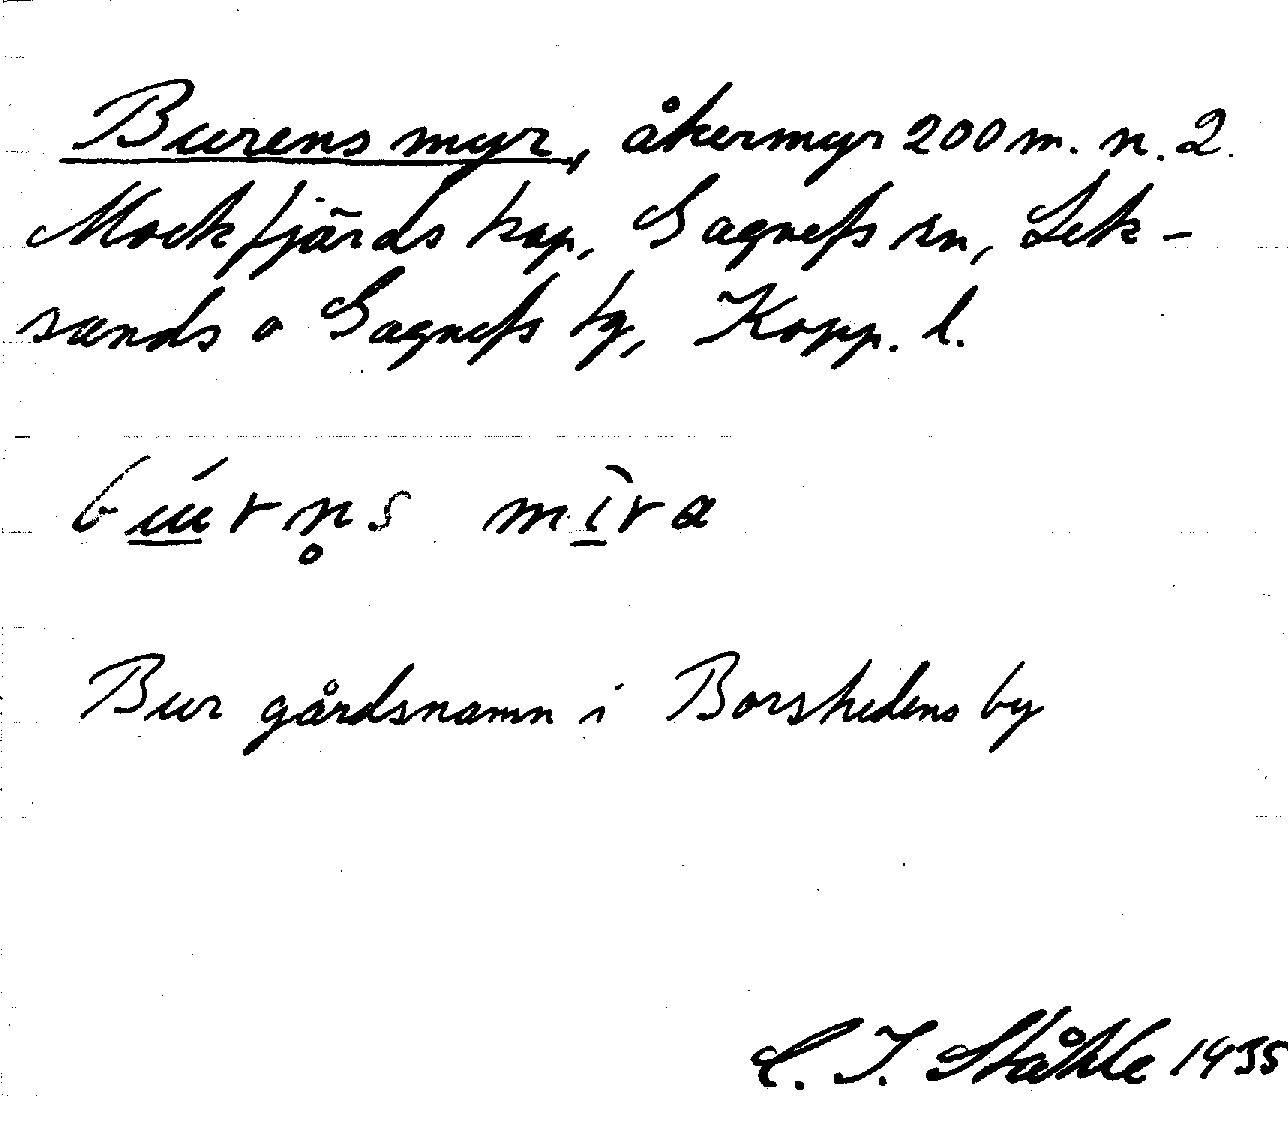 Burens myr, åkermyr 200 m. n. 2.
Mockfjärds kap, Gagnefs sn, Lek-
sands o Gagnefs tg, Kopp. l.
búrn̥s mira
Bur gårdsnamn i Borshedens by
C. I. Ståhle 1935